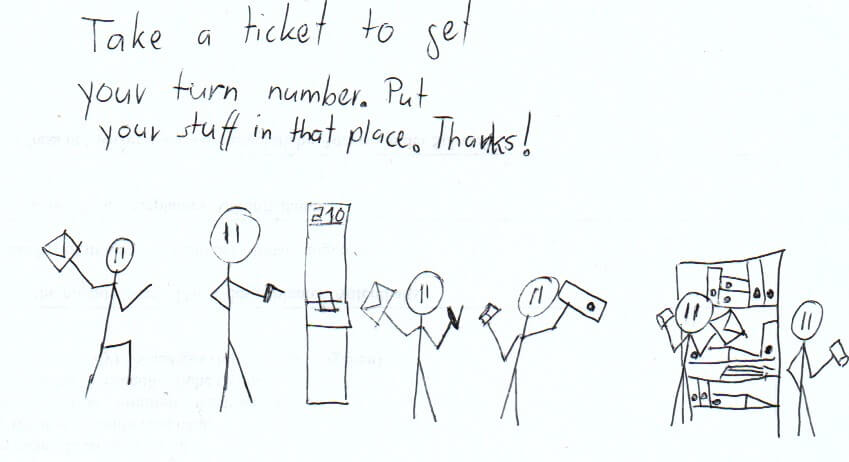 Take a ticket to get
your turn number. Put
your stuff in that place. Thanks!
210